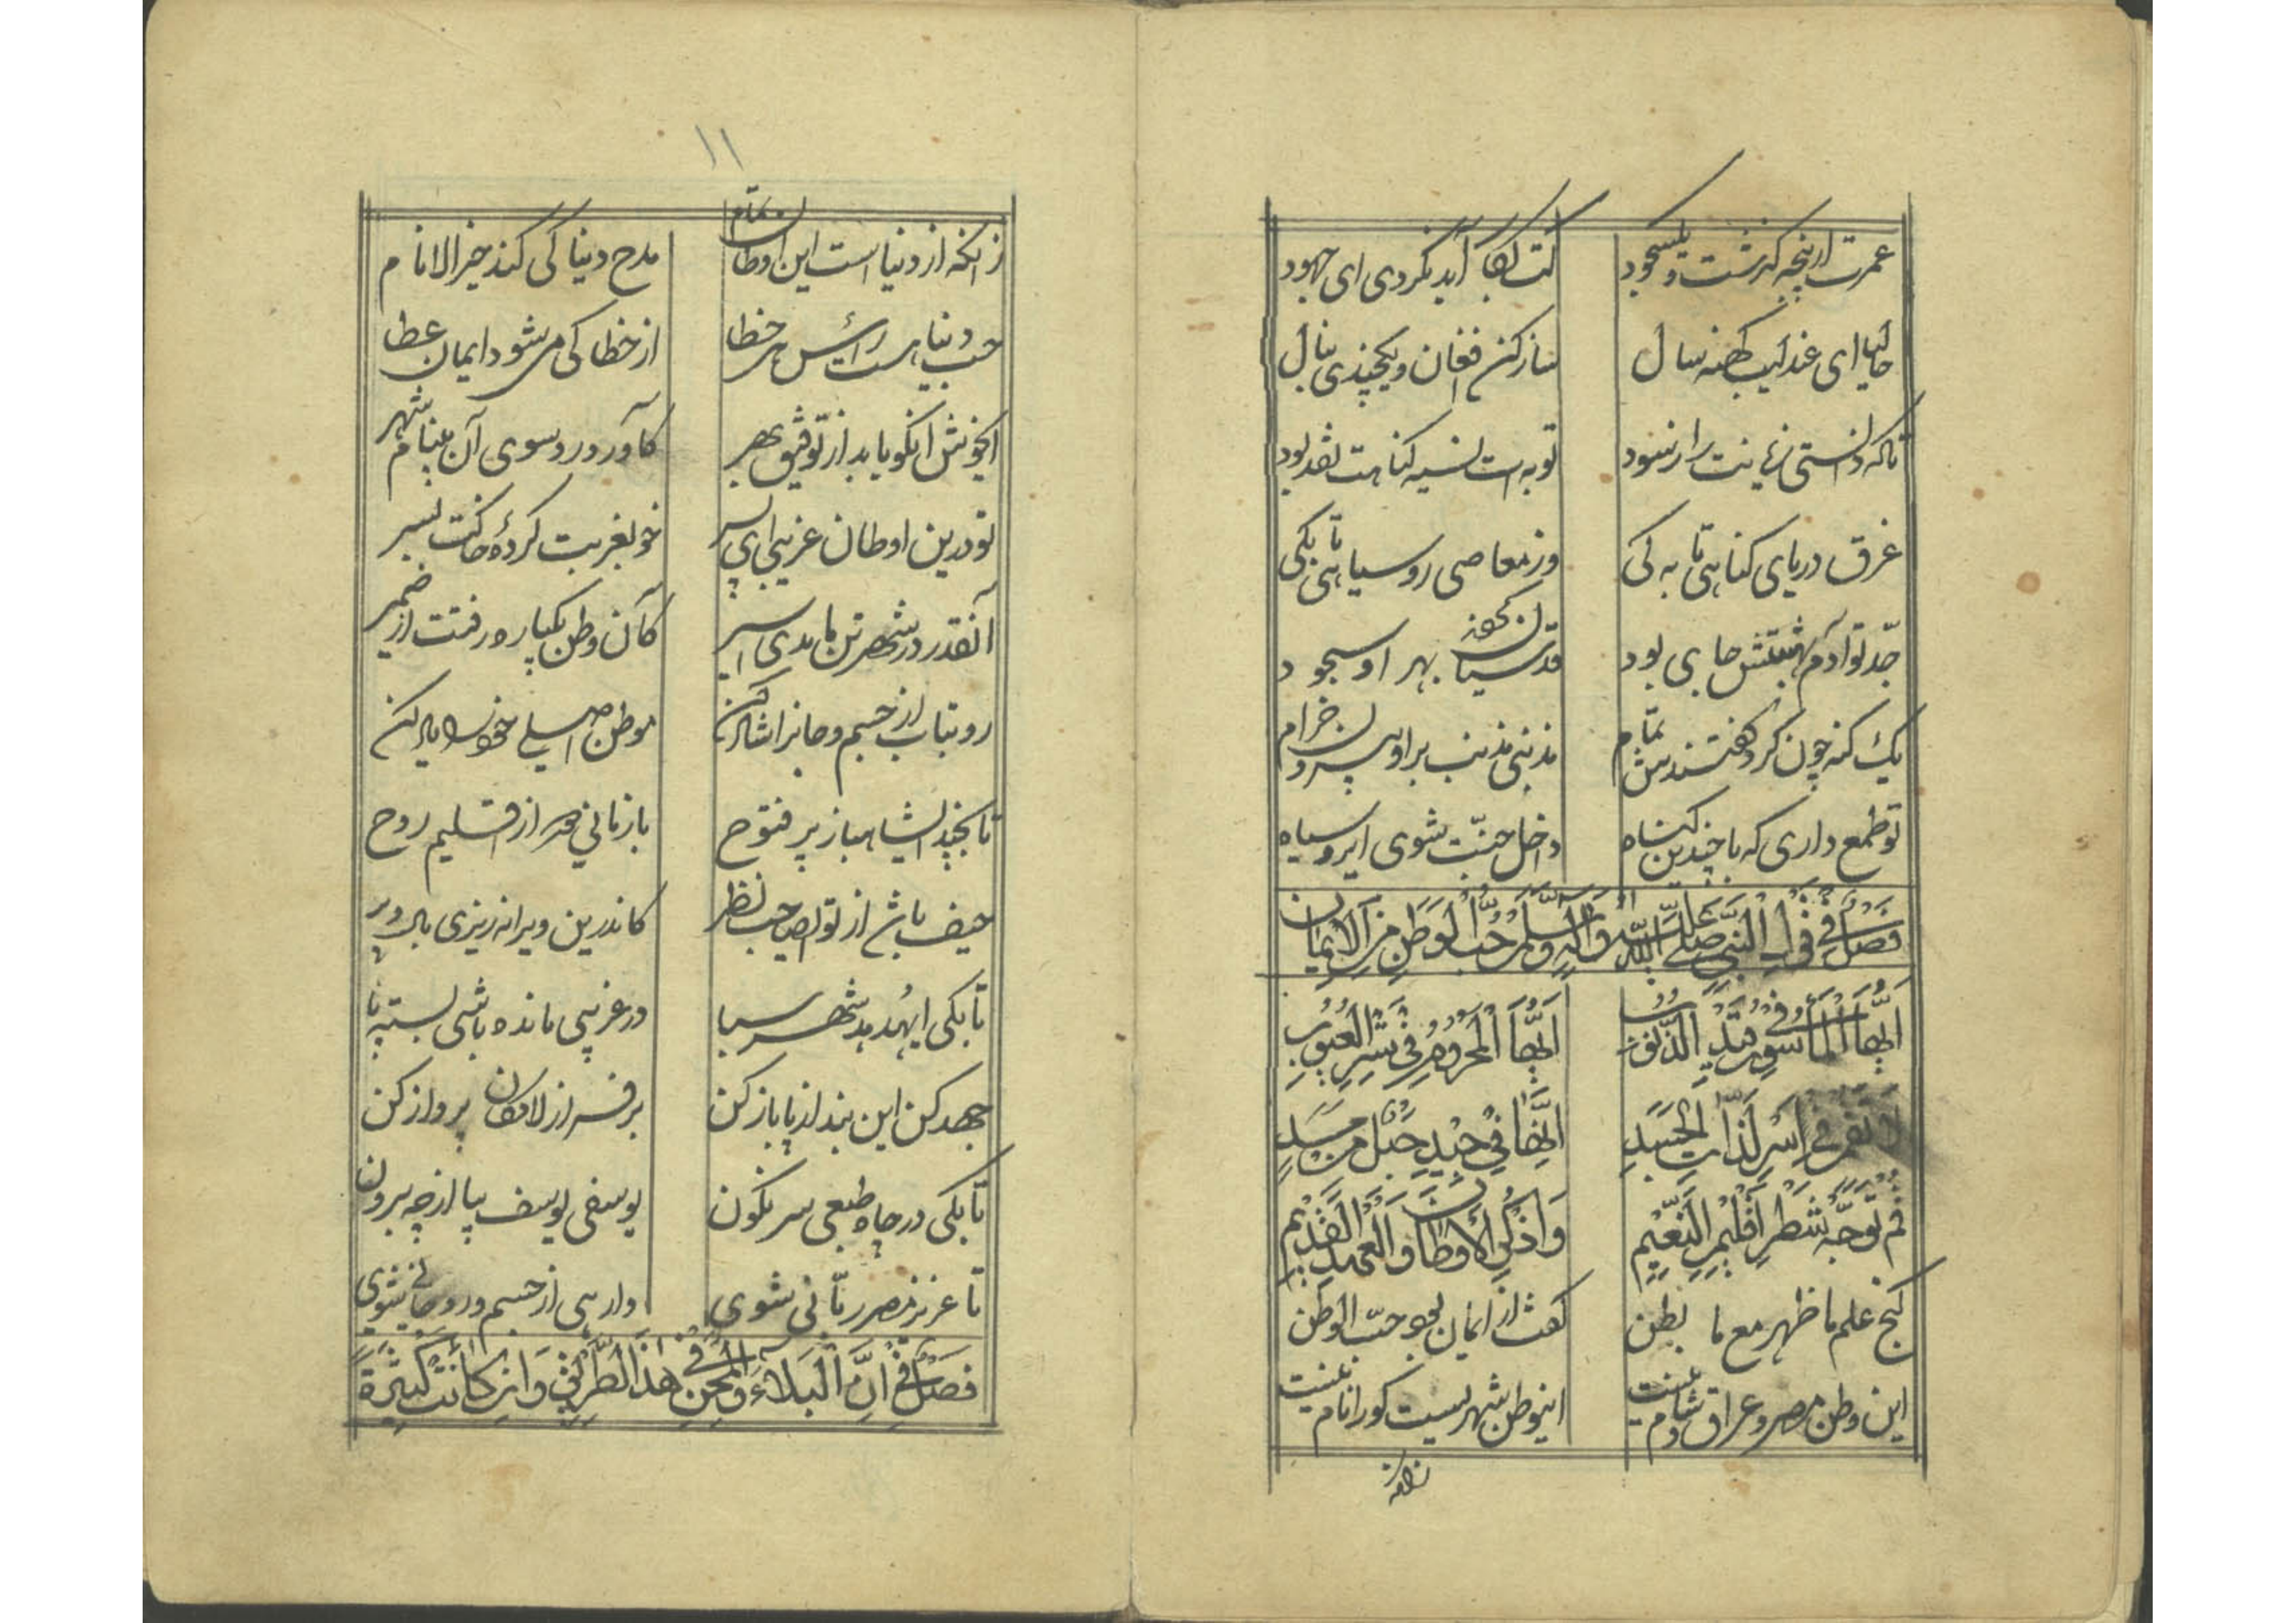 عمرت از پنجه گذشت و یک سجود
کت بکار آید نکردی ای جهود
حالیا ای عندلیب کهنه سال
ساز کن افغان و یکچندی بنال
تا که دانستی زیانت را ز سود
توبه ات نسیه گناهت نقد بود
غرق دریای گناهی تا به کی
وز معاصی رو سیاهی تا بکی
جد تو آدم بهشتش جای بود
قدسیان کردند بهر او سجود
یک گنه چون کرد گفتندش تمام
مذنبی مذنب برو بیرون خرام
تو طمع داری که با چندین گناه
داخل جنّت شوی ای رو سیاه
فَصْلٌ فِی قَولِ النَّبِیِّ صَلَّی اللّٰهُ عَلَیهِ وَآلِهِ وَسَلَّمَ حُبُّ الْوَطَنِ مِنَ الْاِیمَانِ
اَیُّهَا الْمَأْسُورُ فِی قَیْدِ الذُّنُوبِ
اَیُّهَا الْمَحْرُومُ فِی سِرِّ الْغُیُوبِ
لَا تَقُمْ فِی اَسْرِ لَذَّاتِ الْجَسَدِ
اِنَّهَا فِی جِیْدِ حَبْلٍ مِنْ مَسَدٍ
قُمْ تَوَجَّهْ شَطْرَ اَقْلِیمِ النَّعِیمِ
وَاذْکُرِ الْاَوْطَانَ وَالْعَهْدَ الْقَدِیمِ
گنج علم ما ظهر مع ما بطن
گفت از ایمان بود حبّ الوطن
این وطن مصر و عراق و شام نیست
اینوطن شهریست کورا نام نیست
زانکه
۱۱
زانکه از دنیاست این اوطان تمام
مدح دنیا کی کند خیر الانام
حب دنیا هست رأس هر خطا
از خطا کی میشود ایمان عطا
ایخوش آنکو یابد از توفیق بهر
کآورد رو سوی آن بینام شهر
تو درین اوطان غریبی ای پسر
خو بغربت کردهٔ خاکت بسر
آنقدر در شهر تن ماندی اسیر
کآن وطن یکباره رفتت از ضمیر
رو بتاب از جسم و جانرا شاد کن
موطن اصلی خود را یاد کن
تا بچند ایشاهباز پر فتوح
باز مانی دور از اقلیم روح
حیف باشد از تو ایصاحب نظر
کاندرین ویرانه ریزی بال و پر
تا بکی ایهُدهد شهر سبا
در غریبی مانده باشی بسته پا
جهد کن این بند از پا باز کن
بر فراز لامکان پرواز کن
تا بکی در چاه طبعی سر نگون
یوسفی یوسف بیا از چه برون
تا عزیز مصر ربّانی شوی
وارهی از جسم و روحانی شوی
فَصْلٌ فِی اَنَّ الْبَلَاءَ وَالْمِحَنَ فِی هٰذَا الطَّرِیْقِ وَاِنْ کَانَتْ کَثِیْرَةً